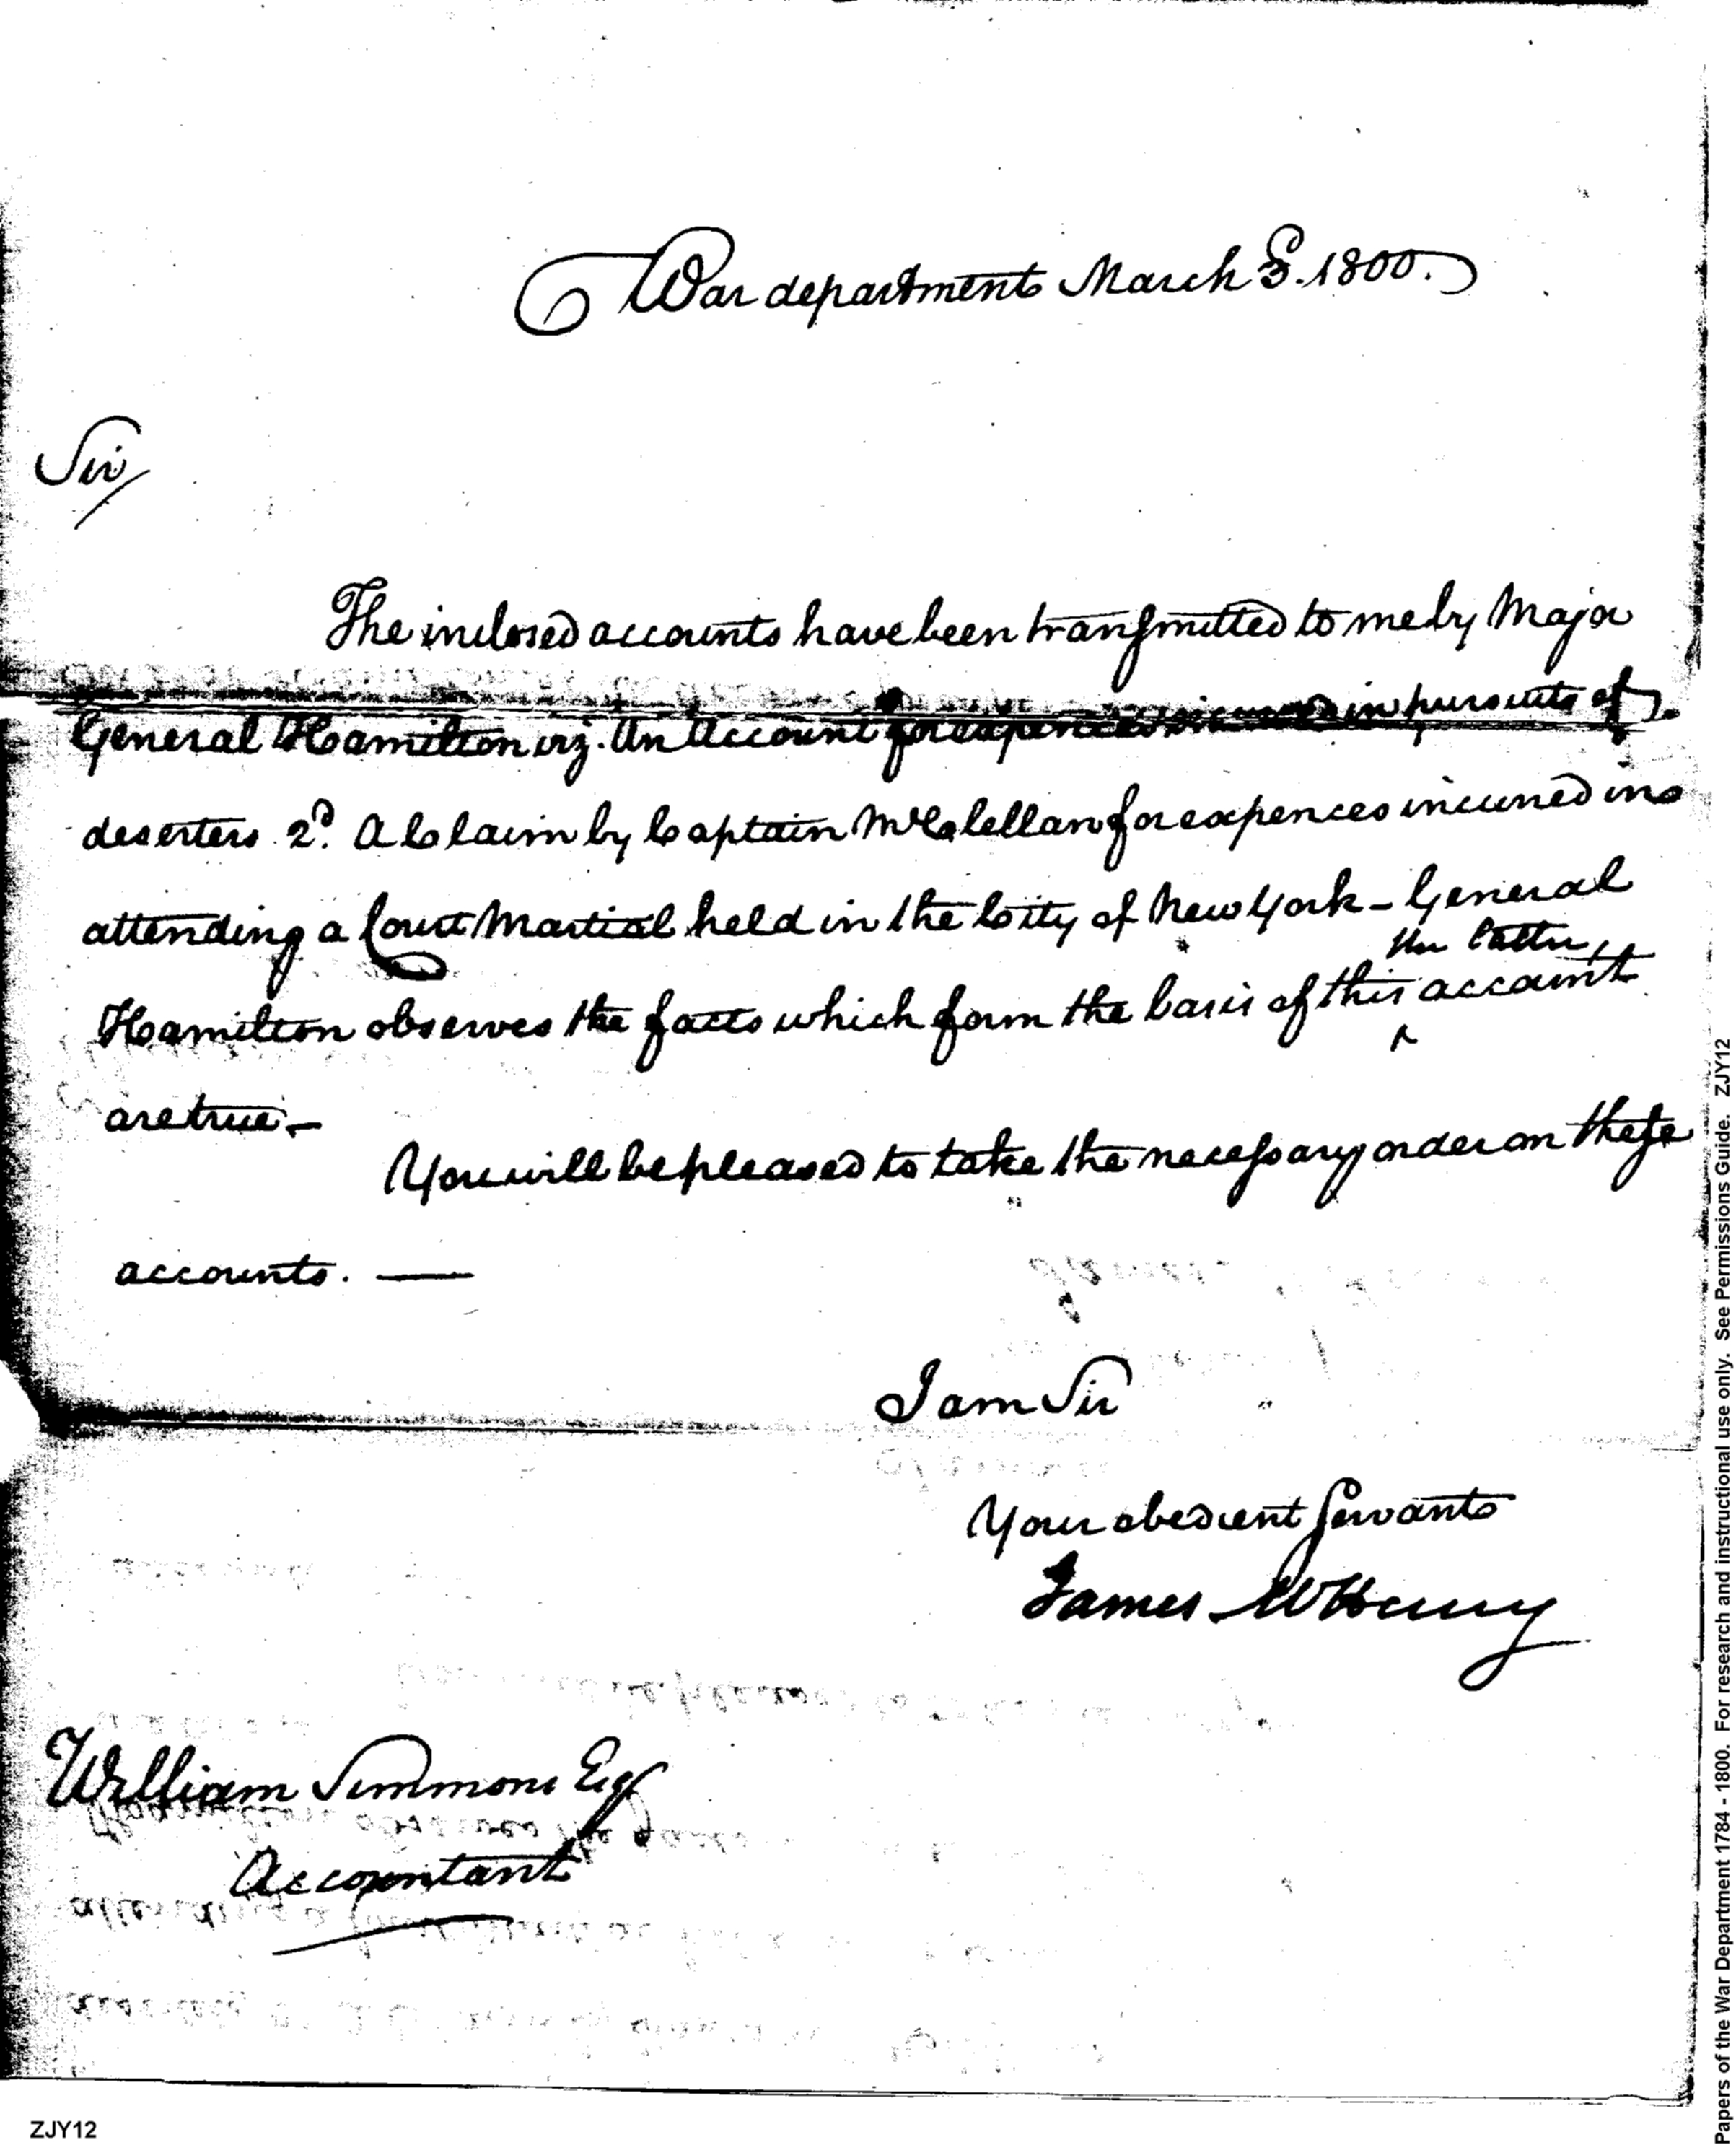 War department March 8. 1800.
Sir
The inclosed accounts have been transmitted to me by Major
General Hamilton viz. An Account for expences incurred in pursuits of
deserters. 2d. A Claim by Captain McClellan for expences incurred in
attending a Court Martial held in the City of New York - General
the latter
Hamilton observes the facts which form the basis of this ^ account
are true -
You will be pleased to take the necessary order on these
accounts. —
I am Sir
Your obedient Servant
James McHenry
William Simmons Esqr
Accountant
ZJY12
Papers of the War Department 1784 - 1800. For research and instructional use only. See Permissions Guide. ZJY12